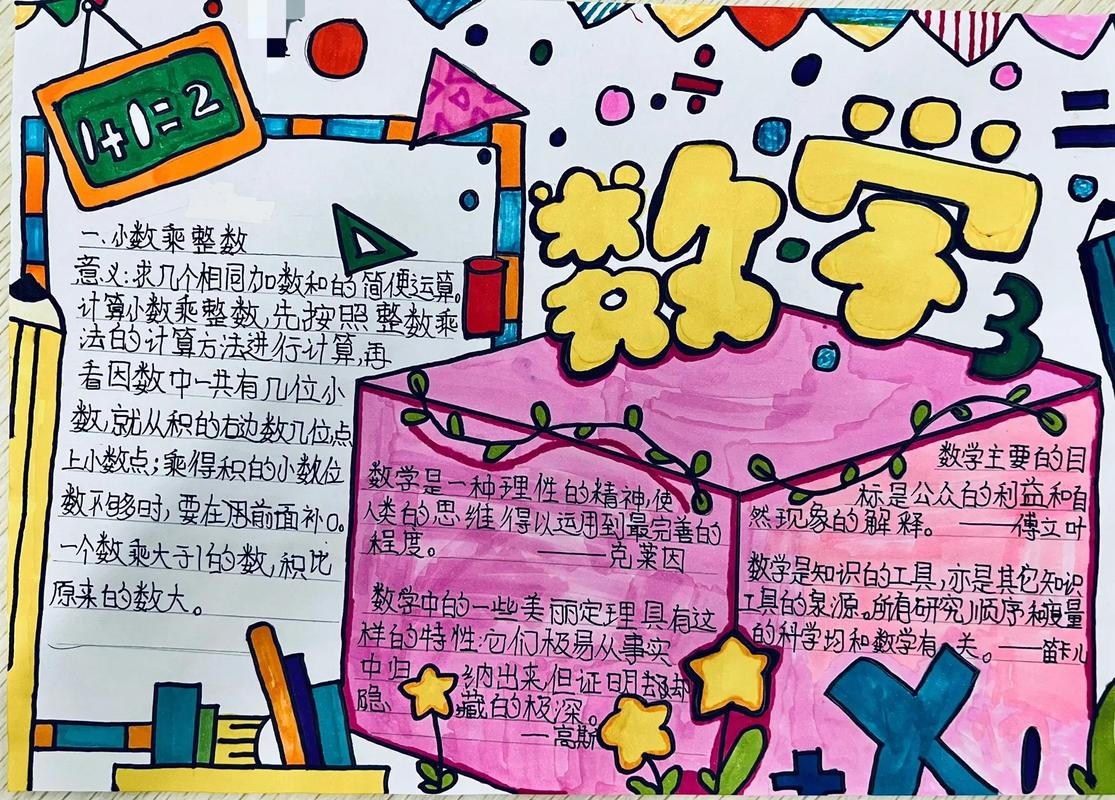 1+1=2
数学
3
一、小数乘整数
意义:求几个相同加数和的简便运算。
计算小数乘整数,先按照整数乘
法的计算方法进行计算,再
看因数中一共有几位小
数,就从积的右边数几位点
上小数点;乘得积的小数位
数不够时,要在用前面补0。
一个数乘大于1的数,积比
原来的数大。
数学是一种理性的精神,使
人类的思维得以运用到最完善的
程度。——克莱因
数学中的一些美丽定理具有这
样的特性:它们极易从事实
中归纳出来,但证明却
隐藏的极深。
——高斯
数学主要的目
标是公众的利益和自
然现象的解释。——傅立叶
数学是知识的工具,亦是其它知识
工具的泉源。所有研究顺序和度量
的科学均和数学有关。——笛卡儿